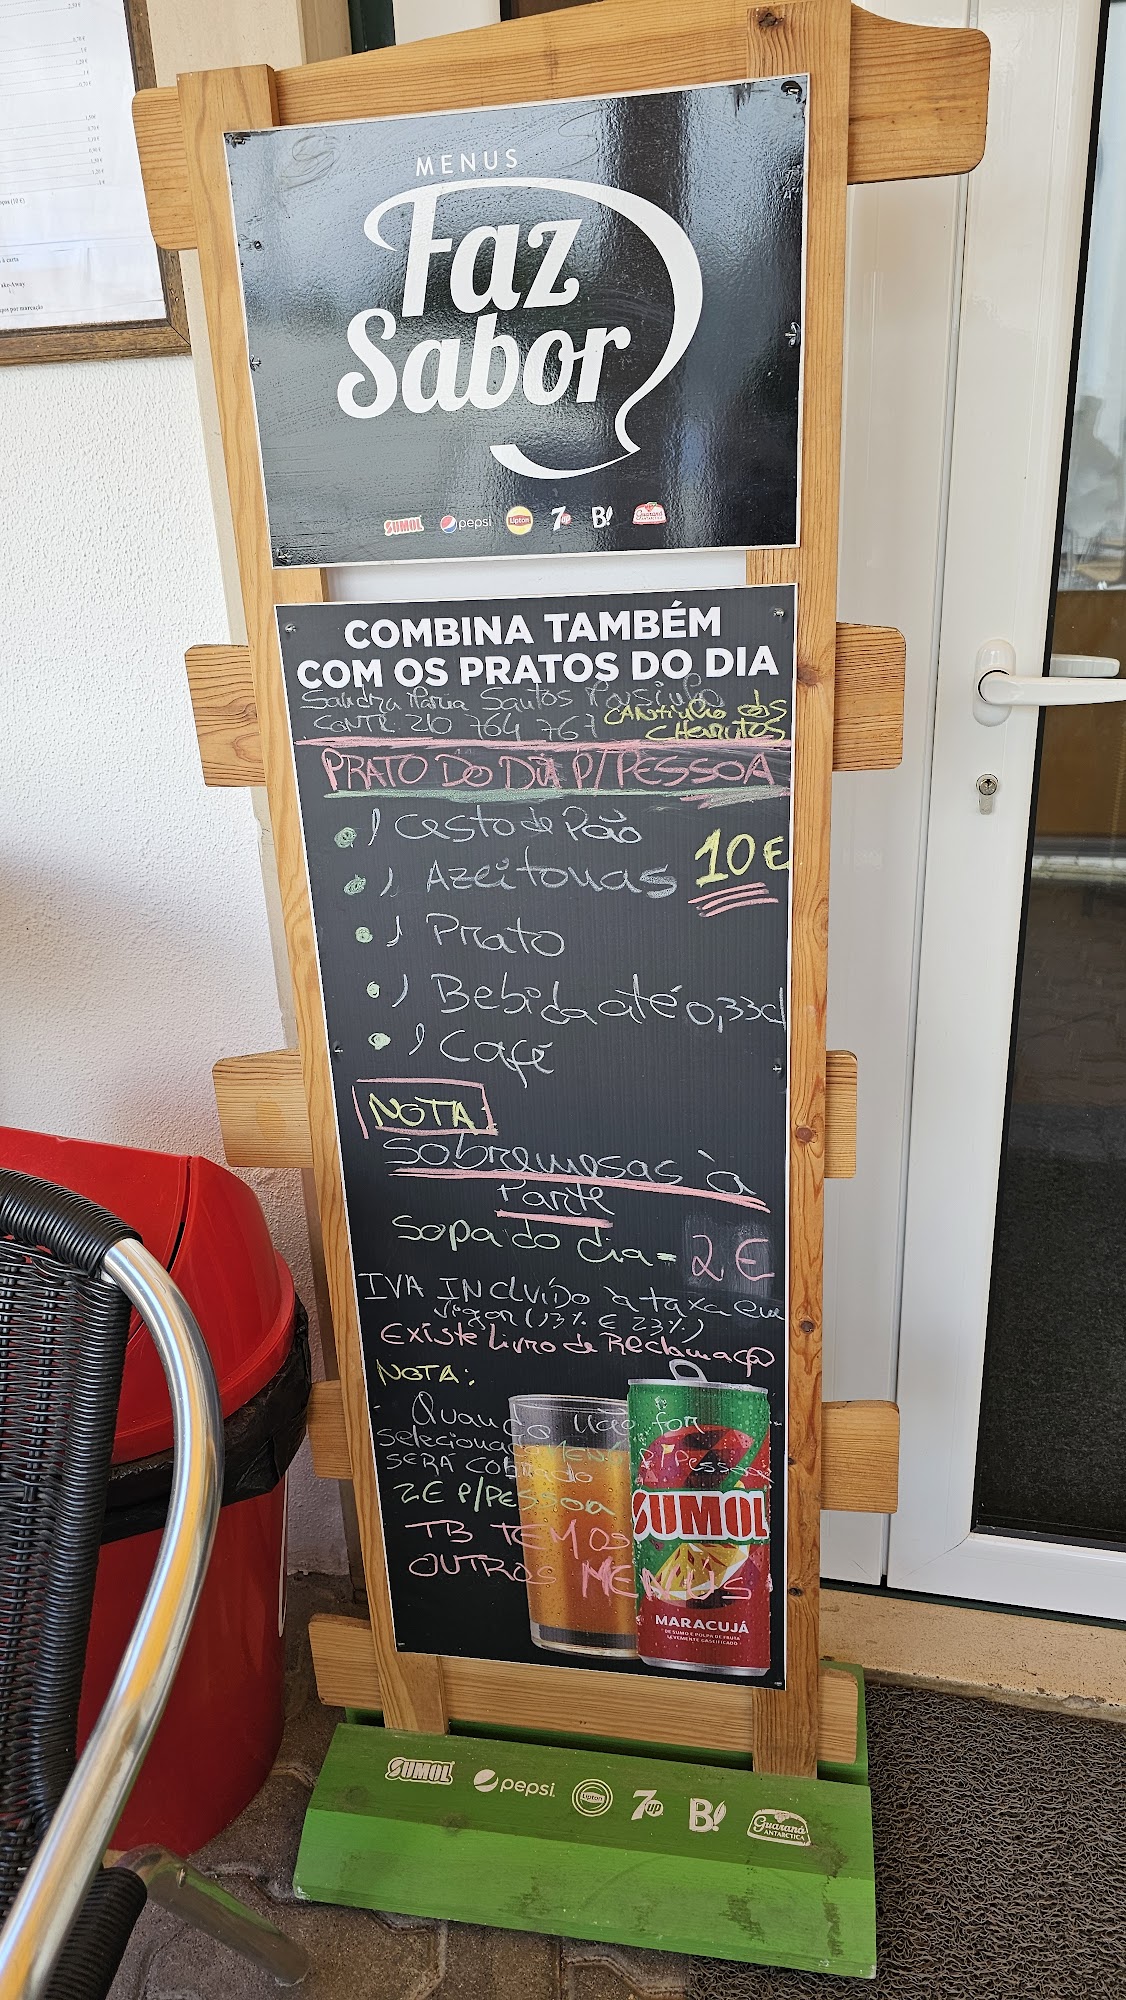 2,50€
3,70€
1€
1,20€
1€
0,70€
1,50€
0,70€
1,10€
0,90€
1,50€
1,20€
3€
(10 €)
à carta
ake-Away
por marcação
MENUS
Faz
Sabor
SUMOL pepsi Lipton 7up B! Guaraná ANTARCTICA
COMBINA TAMBÉM
COM OS PRATOS DO DIA
Sandra Maria Santos
CONT. 210 764 767 CANtiNho dos
CHARUTOS
PRATO DO DIA P/PESSOA
1 Cesto de Pão
10€
1 Azeitonas
1 Prato
1 Bebida até 0,33cl
1 Café
NOTA:
Sobremesas à
Parte
Sopa do dia = 2€
IVA INCLUÍDO à taxa em
vigor (13% E 23%)
EXISTE Livro de Reclamação
NOTA:
Quando não for
selecionado MENÚ P/Pessoa
SERA CObrado
2€ P/PESSOA
TB TEMOS
OUTROS MENUS
SUMOL
MARACUJÁ
DE SUMO E POLPA DE FRUTA
LEVEMENTE GASEIFICADO
SUMOL pepsi. Lipton 7up B! Guaraná ANTARCTICA